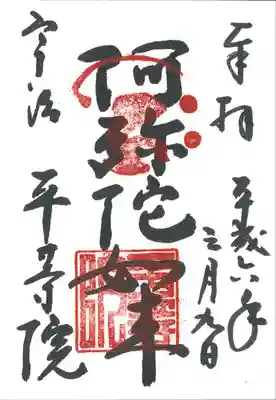 奉拝
平成六年
三月九日
阿弥陀如来
宇治
平等院